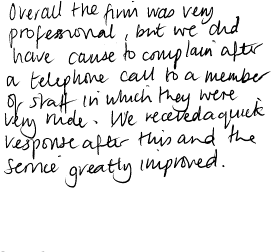 Overall the firm was very
professional, but we did
have cause to complain after
a telephone call to a member
of staff in which they were
very rude. We received a quick
response after this and the
service greatly improved.